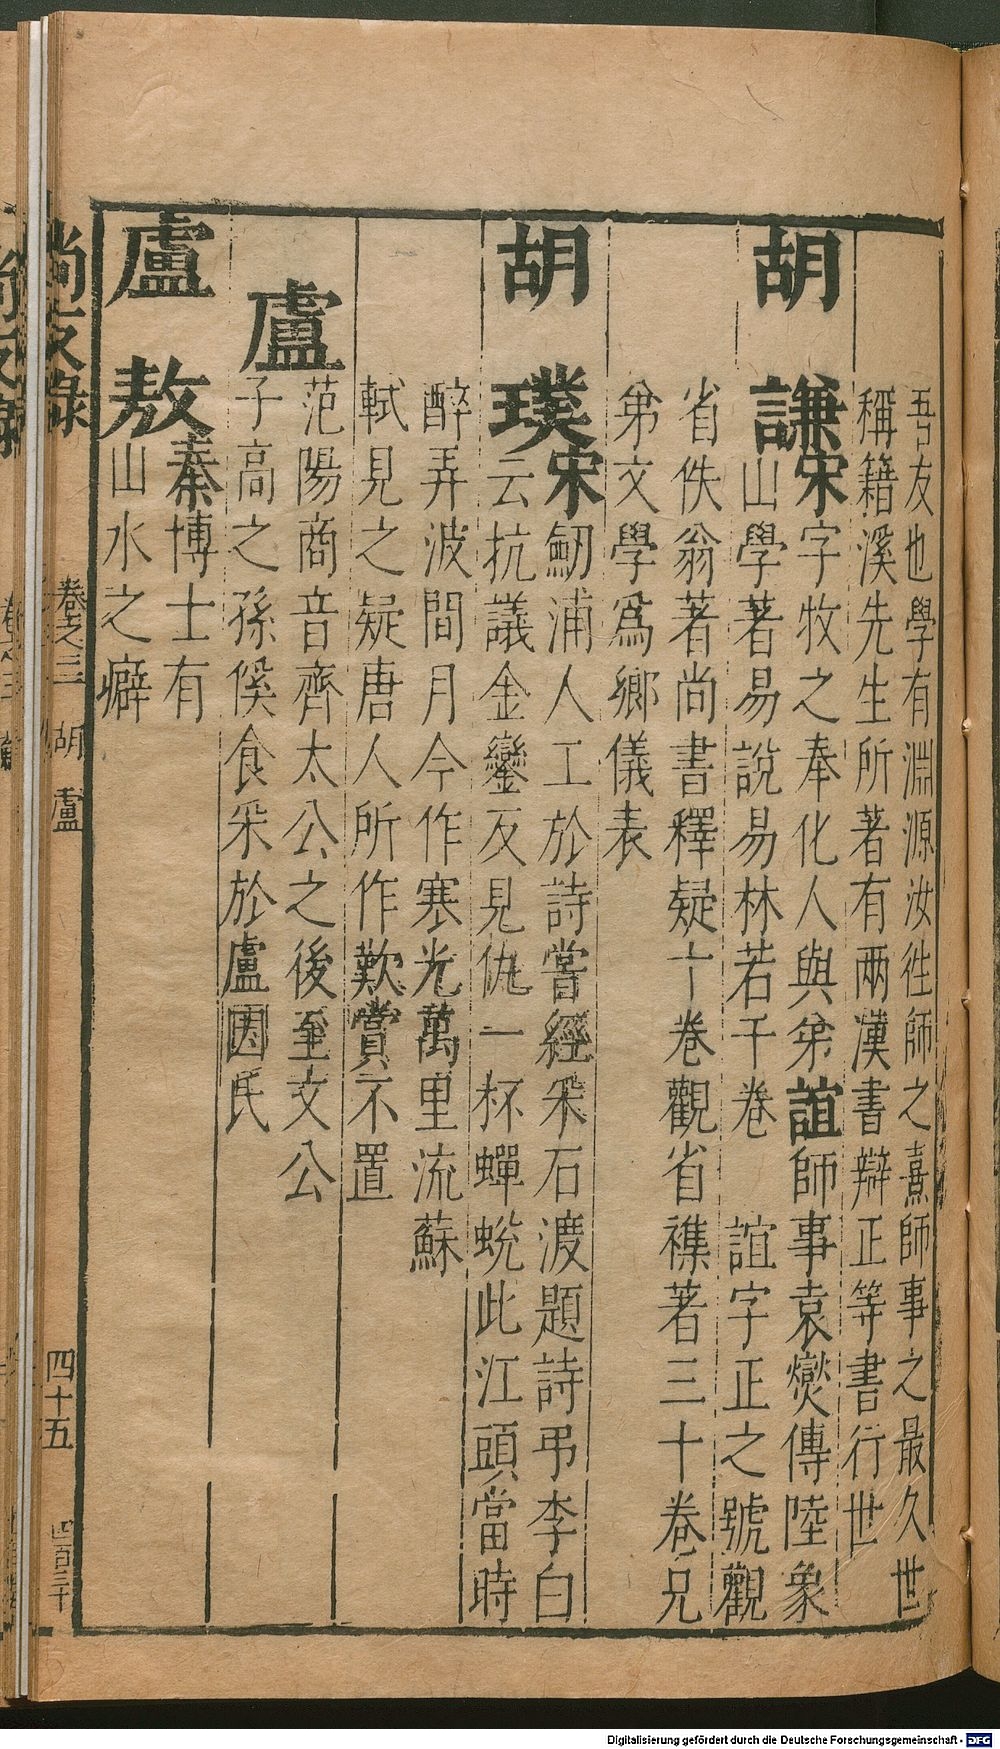 吾友也學有淵源汝徃師之熹師事之最久世
稱籍溪先生所著有兩漢書辯正等書行世
胡謙宋字牧之奉化人與弟誼師事袁燮傳陸象
山學著易說易林若干卷 誼字正之號觀
省佚翁著尚書釋疑十卷觀省襍著三十卷兄
弟文學爲鄉儀表
胡璞宋魛浦人工於詩嘗經采石渡題詩弔李白
云抗議金鑾反見仇一杯蟬蛻此江頭當時
醉弄波間月今作寒光萬里流蘇
軾見之疑唐人所作歎賞不置
盧
范陽商音齊太公之後至文公
子高之孫傒食采於盧因氏
盧敖秦博士有
山水之癖
尚友錄
卷之三 胡 盧
四十五
四百三十
Digitalisierung gefördert durch die Deutsche Forschungsgemeinschaft - DFG